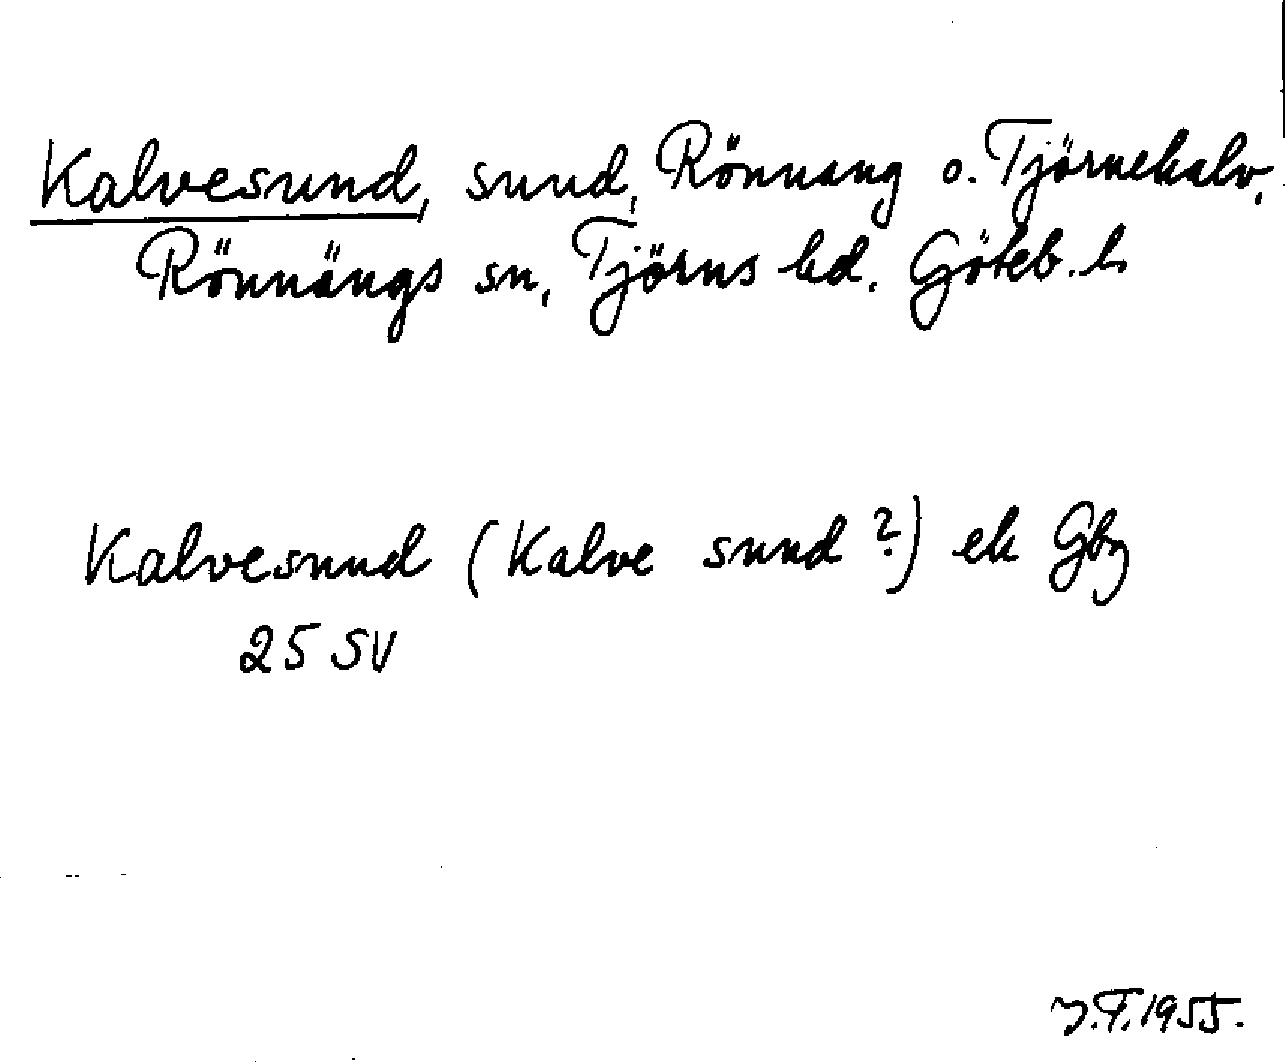 Kalvesund, sund, Rönnang o. Tjörnekalv,
Rönnängs sn, Tjörns hd. Göteb. l.
Kalvesund (Kalve sund ?) ek Gbg
25 SV
J.T. 1955.